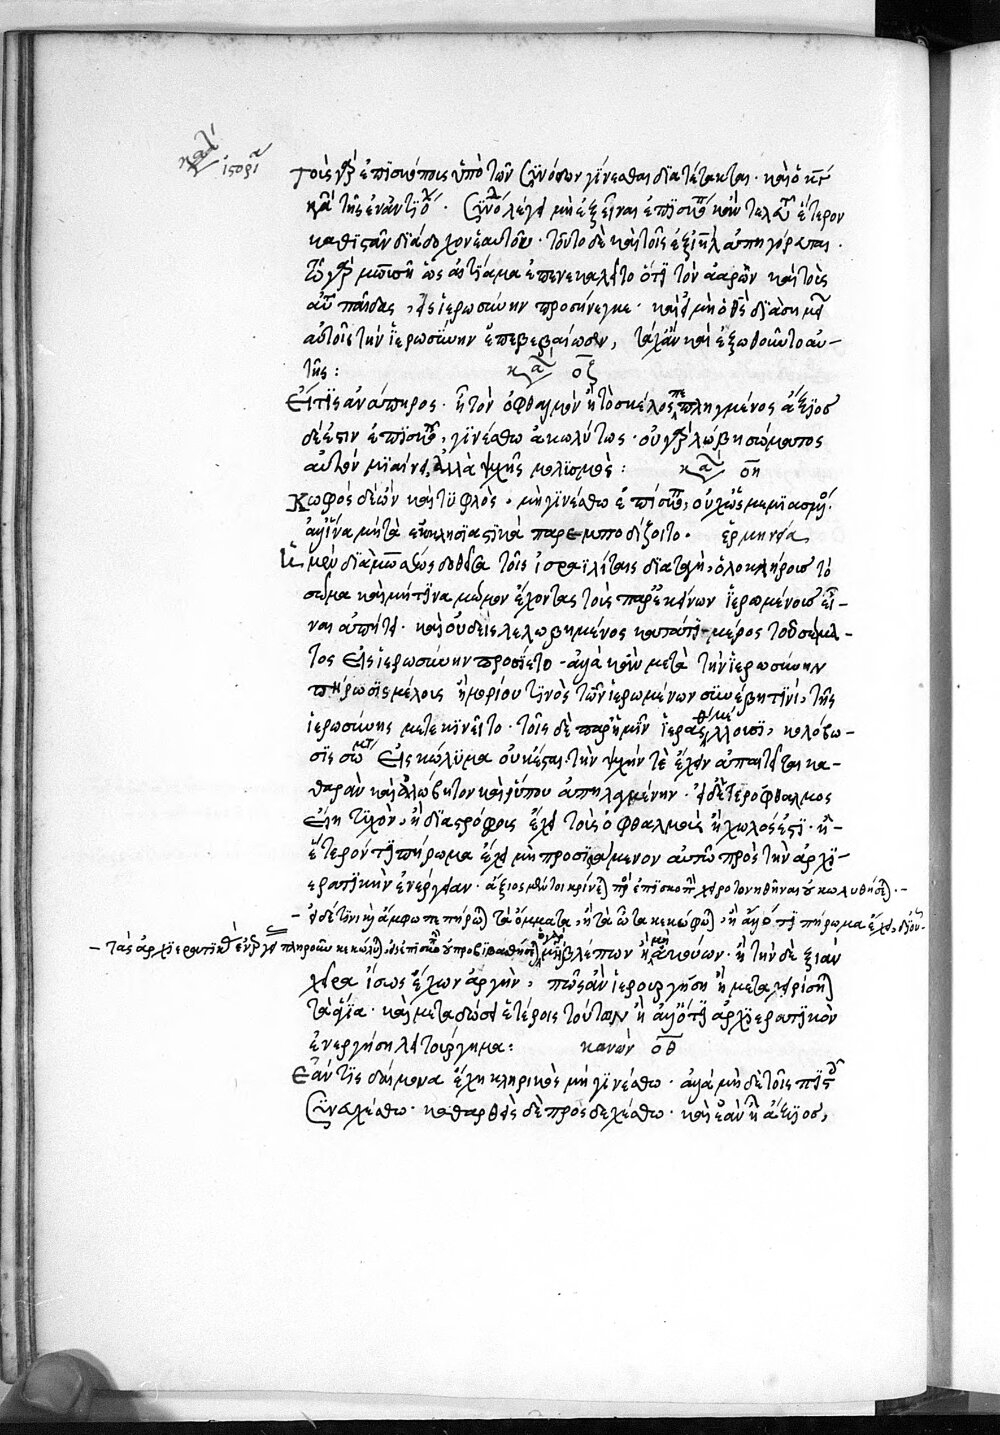 κατ' ἱστορία
τοῖς γὰρ ἐπισκόποις ὑπὸ τῶν συνόδων γίνεσθαι διατέτακται · καὶ ὁ κγ
κα τῆς ἐν ἀντιοχ · συνόδ λέγει μὴ ἐξεῖναι ἐπίσκοπ κἂν τελευτ ἕτερον
καθιστᾶν διάδοχον ἑαυτοῦ · τοῦτο δὲ καὶ τοῖς ἐξ ἰηλ ἀπηγόρευται ·
τῶ γὰρ μωυσῆ ὡς αἰτίαμα ἐπενεκαλεῖτο ὅτι τὸν ἀαρὼν καὶ τοὺς
αὐτ παῖδας, εἰς ἱερωσύνην προσήνεγκε · καὶ εἰ μὴ ὁ θς διὰ σημ
αὐτοῖς τὴν ἱερωσύνην ἐπεβεβαίωσεν, τάχ' ἂν καὶ ἐξωθοῦντο αὐ-
τῆς : κα οζ
Εἴ τις ἀνάπηρος · ἢ τὸν ὀφθαλμὸν ἢ τὸ σκέλος πεπληγμένος ἄξιος
δέ ἐστιν ἐπισκοπ, γινέσθω ἀκωλύτως · οὐ γὰρ λώβη σώματος
αὐτὸν μιαίνει, ἀλλὰ ψυχῆς μολυσμός : κα οη
Κωφὸς δὲ ὢν καὶ τυφλὸς, μὴ γινέσθω ἐπίσκοπ, οὐχ ὡς μεμιασμ,
ἀλλ' ἵνα μὴ τὰ ἐκκλησιαστικὰ παρεμποδίζοιτο. ἑρμηνεία
Ἡ μὲν διὰ μωσέως δοθεῖσα τοῖς ἰσραηλίταις διαταγὴ, ὁλοκλήρους τὸ
σῶμα καὶ μή τινα μῶμον ἔχοντας τοὺς παρ' ἐκείνων ἱερωμένους εἶ-
ναι ἀπῄτει · καὶ οὐδεὶς λελωβημένος κατά τι μέρος τοῦ σώμα-
τος εἰς ἱερωσύνην προσίετο · ἀλλὰ κἂν μετὰ τὴν ἱερωσύνην
πήρωσις μέλους ἢ μορίου τινὸς τῶν ἱερωμένων συνέβη τινὶ, τῆς
ἱερωσύνης μετεκινεῖτο · τοῖς δὲ παρ' ἡμῖν ἱερᾶσθαι μέλλουσι, κολόβω-
σις σώματ εἰς κώλυμα οὐκ ἔσται · τὴν ψυχήν τε ἔχειν ἀπαιτεῖται κα-
θαρὰν καὶ ἀλώβητον καὶ ῥύπου ἀπηλλαγμένην · εἰ δὲ ἑτερόφθαλμος
εἴη τυχὸν, ἢ διαστρόφους ἔχει τοὺς ὀφθαλμοὺς ἢ χωλός ἐστι · ἢ-
ἕτερόν τι πήρωμα ἔχει μὴ προσιστάμενον αὐτῶ πρὸς τὴν ἀρχι-
ερατικὴν ἐνέργειαν · ἄξιος δὲ κρίνεται πρὸς ἐπισκοπὴν χειροτονηθῆναι οὐ κωλυθήσεται · -
- εἰ δέ τινι καὶ ἄμφω πεπήρωται τὰ ὄμματα, ἢ τὰ ὦτα κεκώφωται, ἢ ἄλλό τι πήρωμα ἔχει,
- τὰς ἀρχιερατικὰς ἐνεργείας πληροῦν κεκώλυται, εἰς ἐπισκοπὴν οὐ προβιβασθήσεται · ὁ γὰρ μὴ βλέπων ἢ μὴ ἀκούων · ἢ τὴν δεξιὰν
χεῖρα ἴσως ἔχων ἀργὴν, πῶς ἂν ἱερουργήση ἢ μεταχειρίσηται
τὰ ἅγια · καὶ μεταδώσει ἑτέροις τούτων ἢ ἄλλό τι ἀρχιερατικὸν
ἐνεργήση λειτούργημα : κανὼν οθ
Ἐάν τις δαίμονα ἔχη κληρικὸς μὴ γινέσθω · ἀλλὰ μὴ δὲ τοῖς πιστ
συνευχέσθω · καθαρθεὶς δὲ προσδεχέσθω · καὶ ἐὰν ἦ ἄξιος,